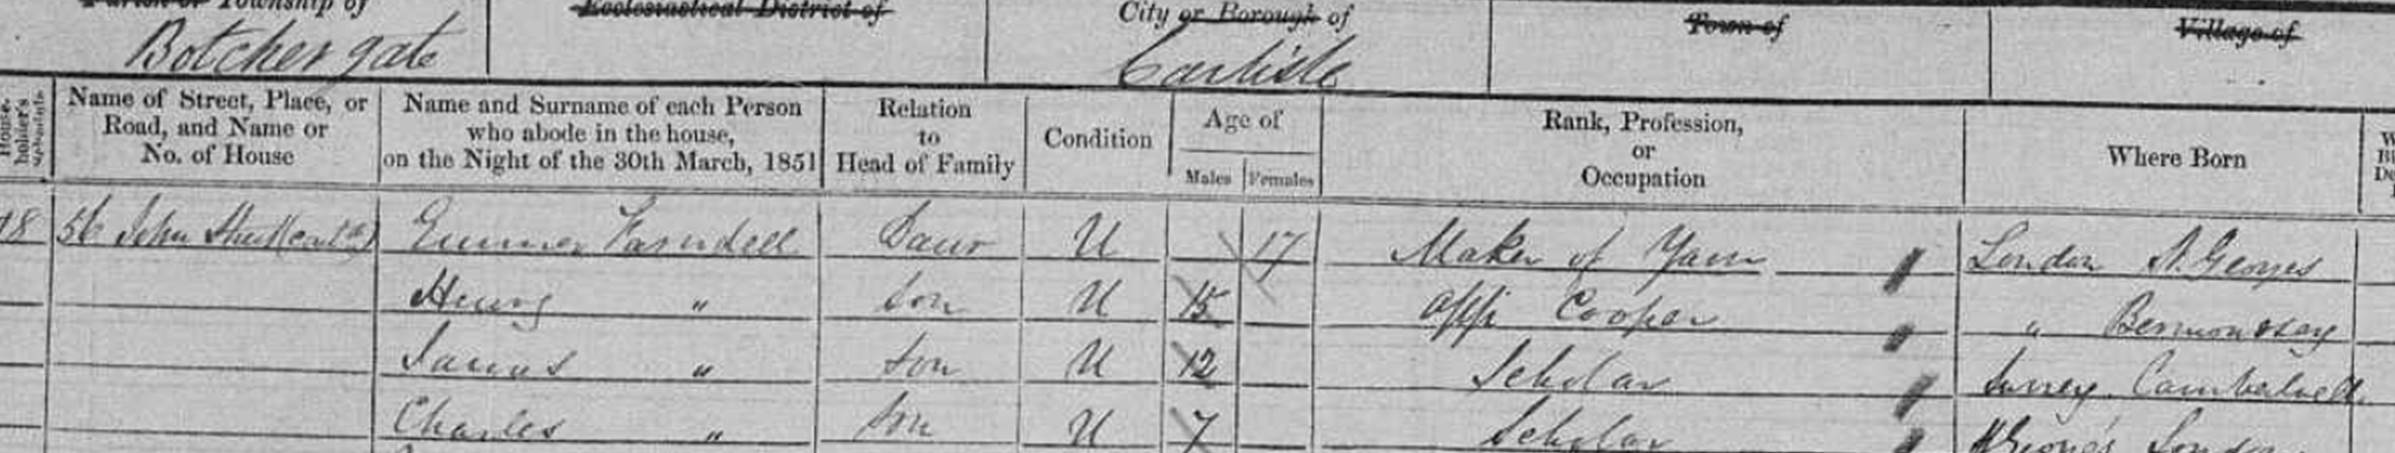 Parish or Township of Ecclesiastical District of City or Borough of Town of Village of
Botchergate Carlisle
Name of Street, Place, or Road, and Name or No. of House
Name and Surname of each Person who abode in the house, on the Night of the 30th March, 1851
Relation to Head of Family
Condition
Age of
Males Females
Rank, Profession, or Occupation
Where Born
56 John Street Emma Farndell Daur U 17 Maker of Yarn London St. Georges
Henry " Son U 15 Appr Cooper " Bermondsay
James " Son U 12 Scholar Surrey Camberwell
Charles " Son U 7 Scholar St Georges London